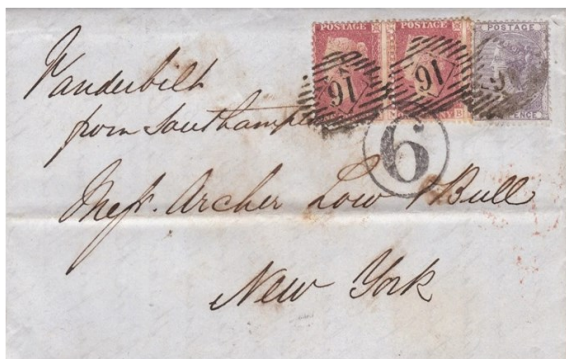 POSTAGE POSTAGE POSTAGE
16 16
PENCE
Vanderbilt
from Southampt
6
Mess. Archer Low & Bull
New York